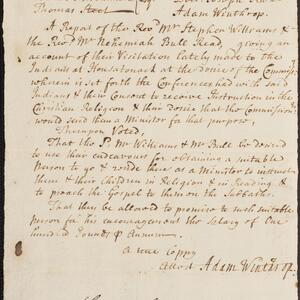 Thomas Steel Esqr.
Adam Winthrop.
A Report of the Revd. Mr. Stephen Williams &
the Revd. Mr. Nehemiah Bull Read, giving an
account of their Visitation lately made to the
Indians at Housatonack at the desire of the Commissrs.
wherein is set forth the Conference had with said
Indians & their Consent to receive Instruction in the
Christian Religion & their Desire that the Commissionrs.
would send them a Minister for that purpose,
Thereupon Voted,
That the sd. Mr. Williams & Mr. Bull be desired
to use their endeavours for obtaining a suitable
Person to go & reside there as a Minister to instruct
them & their Children in Religion & in Reading &
to preach the Gospel to them on the Sabbaths.
That they be allowed to promise to such suitable
person for his encouragement the Salary of One
hundred Pounds ⅌ Annum.
A true Coppy
Attest Adam Winthrop.